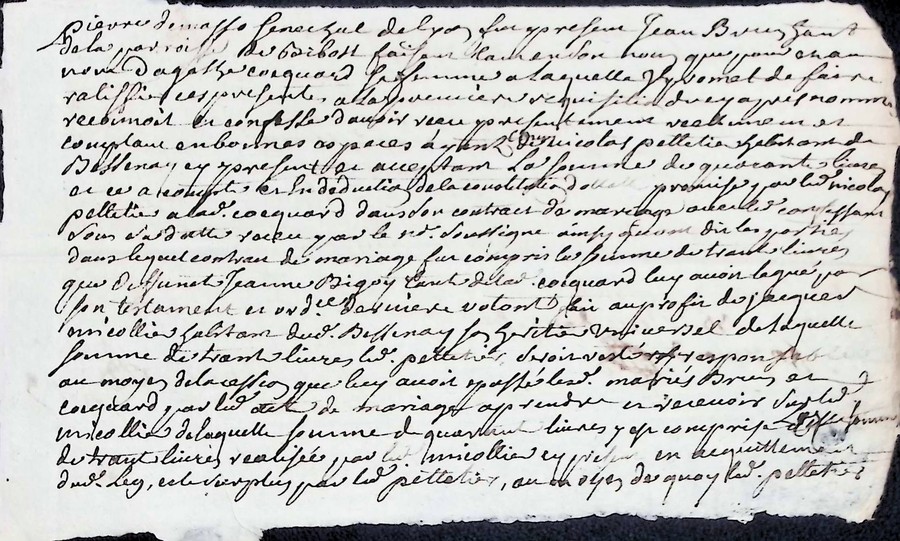 pierre demasso senechal de lyon fut present Jean Brun habitant
de la parroisse de Bibost faisant tant en son nom que pour et au
nom d'agathe cocquard sa femme a laquelle il promet de faire
ratiffier ces presentes a la premiere requisition du cy apres nommé
reconnoit et confesse d'avoir receu presentement reellement et
comptant en bonnes especes ayant cours de nicolas pelletie habitant de
Bessenay cy present et acceptant La somme de quarante livres
et ce a compte et En deduction de la constitution promise par led. nicolas
pelletie a lad. cocquard dans son contract de mariage avec led. confessant
sous sa datte receu par le no.re soussigné ainsy qu'ont dit les parties
dans lequel contract de mariage fut compris la somme de trante livres
que deffunct Jeanne Bigoy tante de lad. cocquard luy avoit legué par
son testament et ord.ce de derniere volonté fait au profit de jacques
micollie habitant dud. Bessenay son heritie Universel de laquelle
somme de trante livres led. pelletier seroit responsable
au moyen de la cession que luy avoit passé lesd. mariés Brun et
cocquard par led. act. de mariage a prendre et recevoir sur led.
micollie de laquelle somme de quarante livres y est comprise somme
de trante livres realisée par led. micollie cy present en acquittement
dud. leg, et le surplus par led. pelletier, au moyen de quoy led. pelletier